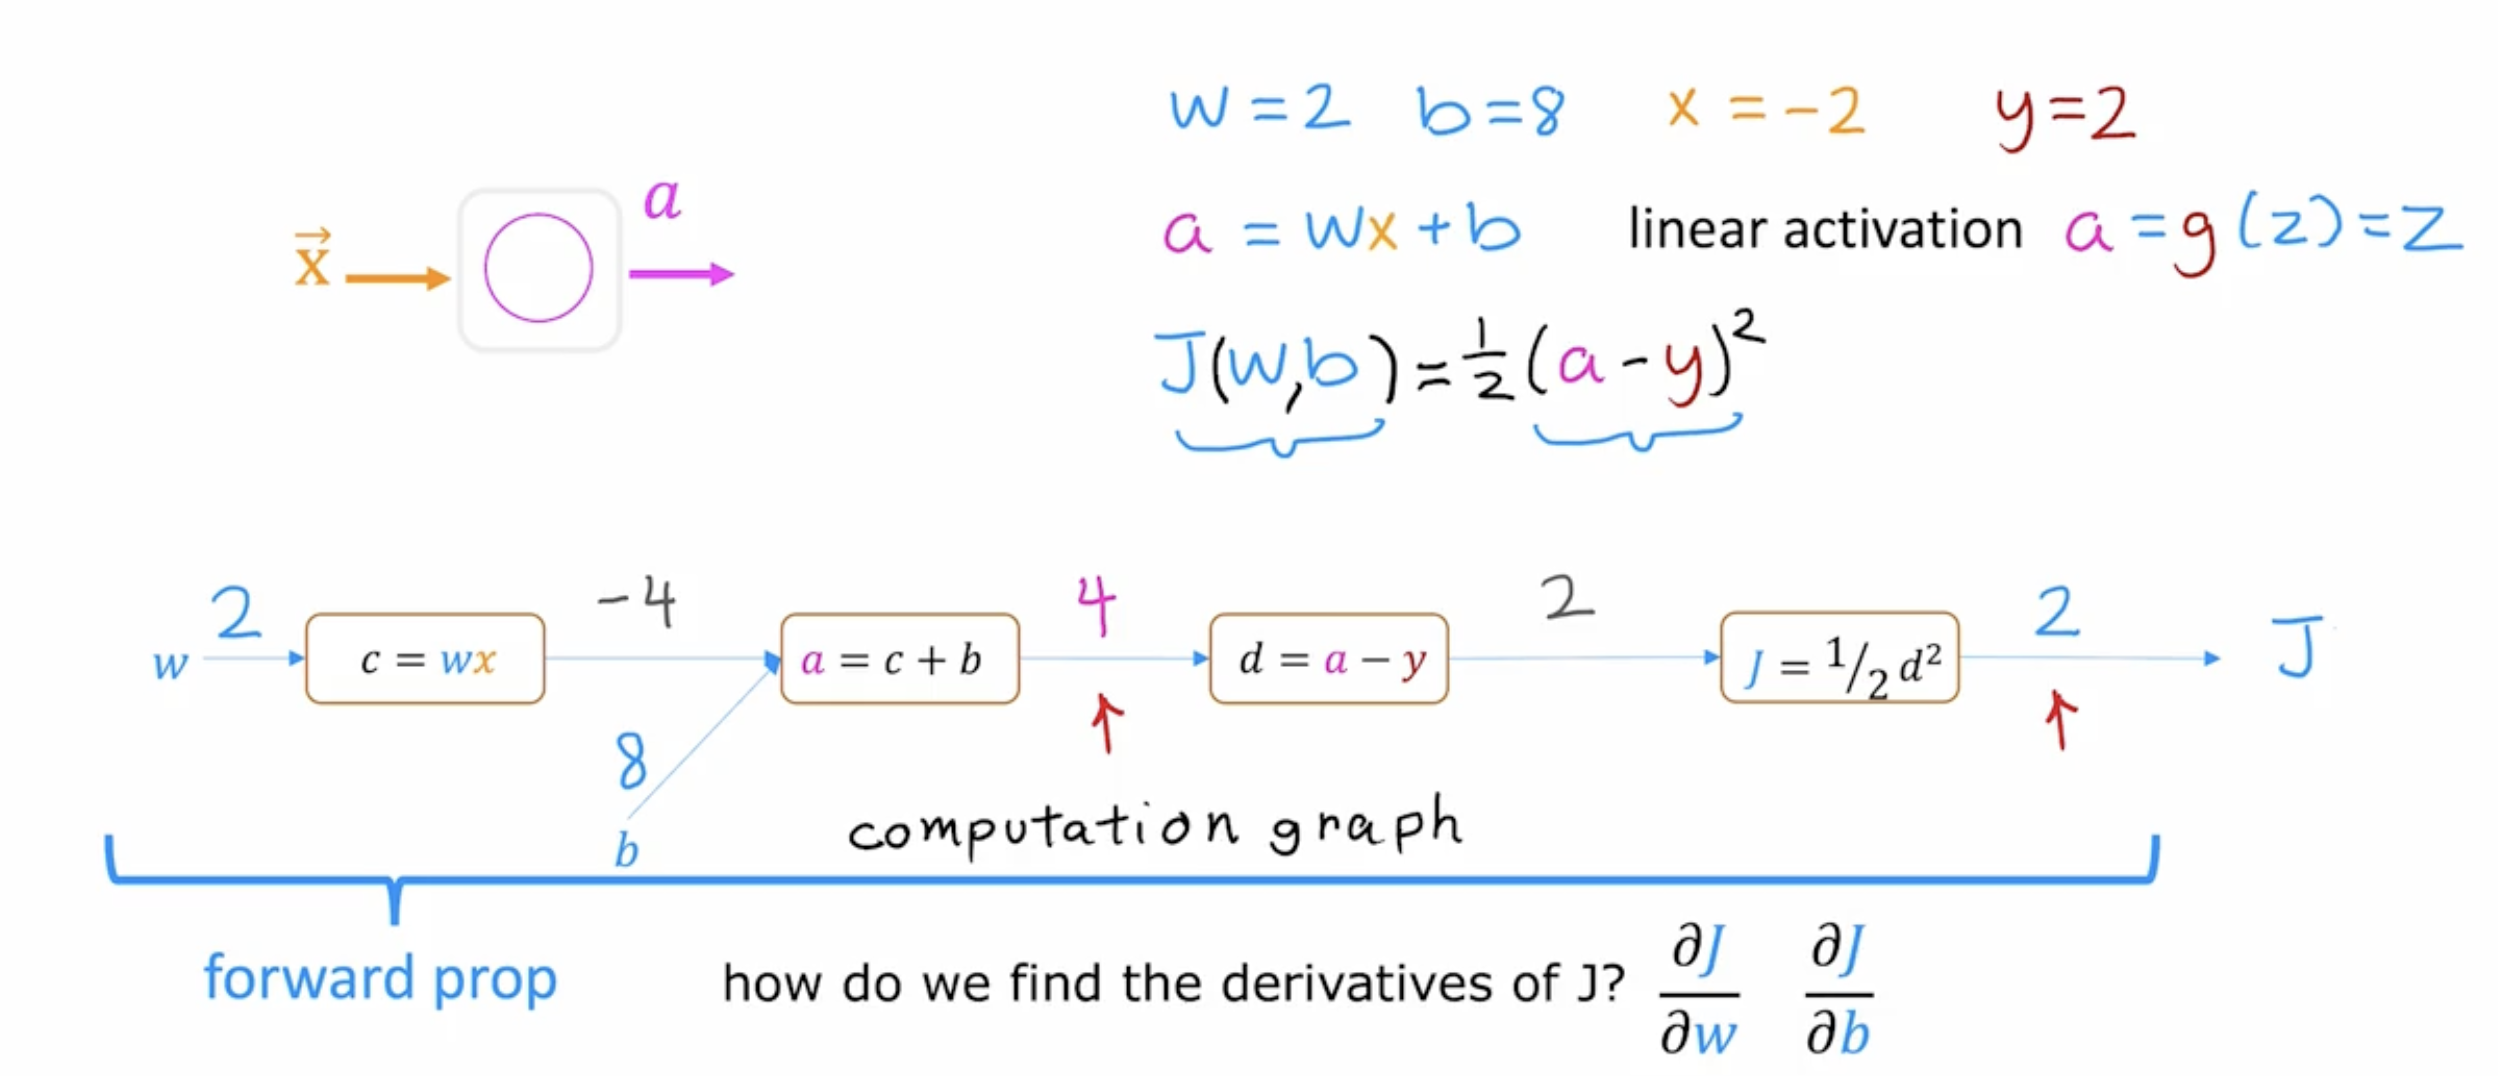 w = 2 b = 8 x = -2 y = 2
a
x⃗
a = wx + b linear activation a = g(z) = z
J(w,b) = 1/2 (a - y)²
2 -4 4 2 2
w c = wx a = c + b d = a − y J = 1/2 d² J
8
b
computation graph
forward prop how do we find the derivatives of J? ∂J/∂w ∂J/∂b